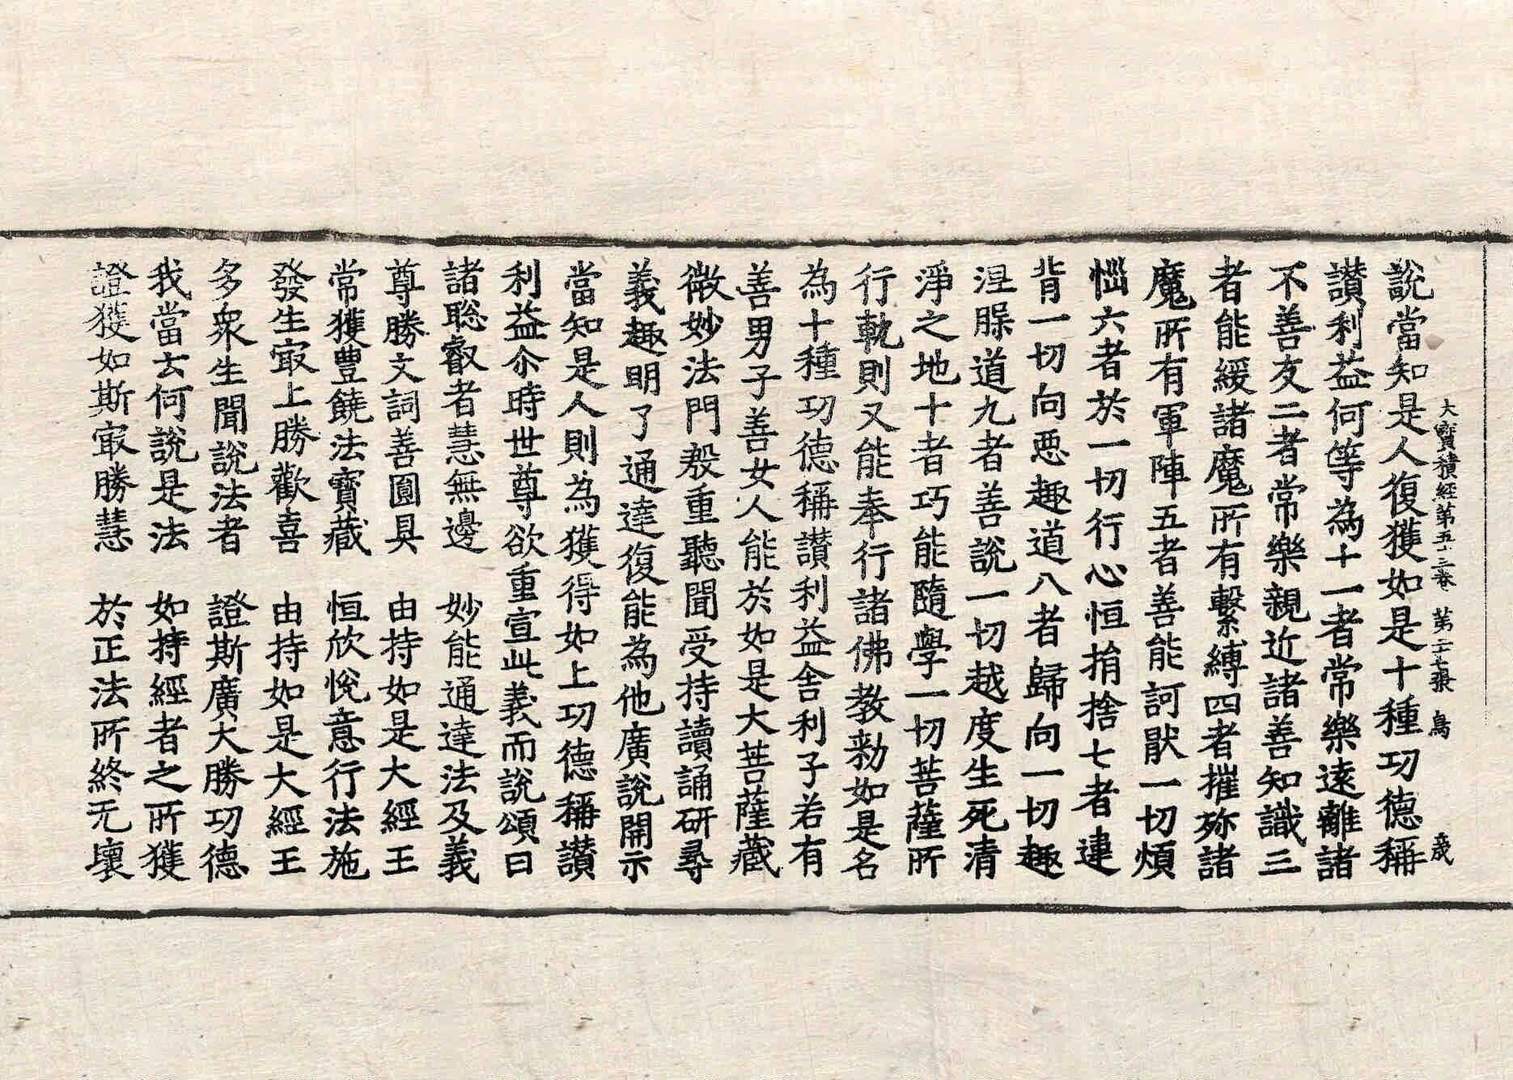 大寶積經第五十三卷 第二十七張 鳥 歲
說當知是人復獲如是十種功德稱
讃利益何等為十一者常樂遠離諸
不善友二者常樂親近諸善知識三
者能緩諸魔所有繫縛四者摧殄諸
魔所有軍陣五者善能訶猒一切煩
惱六者於一切行心恒捐捨七者違
背一切向惡趣道八者歸向一切趣
涅槃道九者善說一切越度生死清
淨之地十者巧能隨學一切菩薩所
行軌則又能奉行諸佛教勑如是名
為十種功德稱讃利益舍利子若有
善男子善女人能於如是大菩薩藏
微妙法門殷重聽聞受持讀誦研尋
義趣明了通達復能為他廣說開示
當知是人則為獲得如上功德稱讃
利益尒時世尊欲重宣此義而說頌曰
諸聡叡者慧無邊 妙能通達法及義
尊勝文詞善圓具 由持如是大經王
常獲豐饒法寶藏 恒欣悅意行法施
發生㝡上勝歡喜 由持如是大經王
多衆生聞說法者 證斯廣大勝功德
我當云何說是法 如持經者之所獲
證獲如斯㝡勝慧 於正法所終无壞